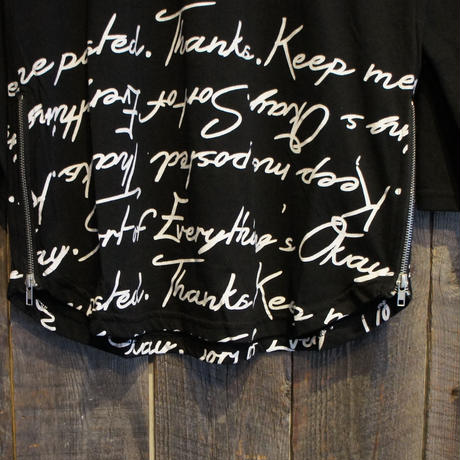 me posted. Thanks. Keep me
ing's Okay. Sort of Everything
Keep me posted. Thanks.
Sort of Everything's Okay.
posted. Thanks. Keep
Okay. Sort of Every